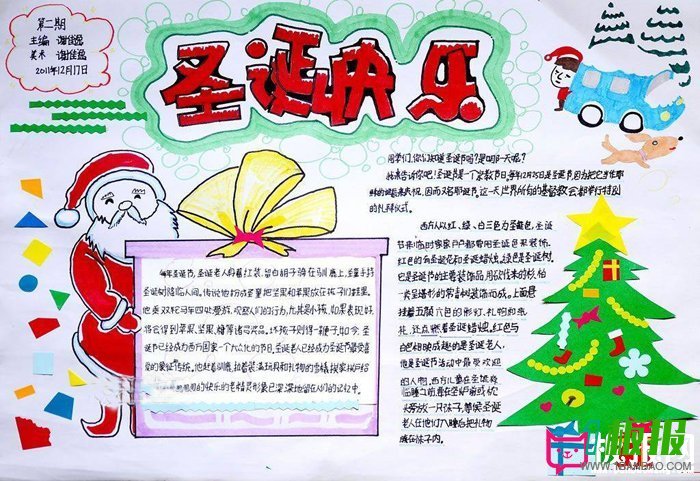 第二期
主编 谢佳逸
美术 谢佳逸
2011年12月17日
圣诞快乐
同学们,你们知道圣诞节吗?是哪一天呢?
我来告诉你吧!圣诞是一个宗教节日。每年12月25日是圣诞节因为把它当作耶
稣的诞辰来庆祝,因而又名耶诞节。这一天世界所有的基督教会都举行特别
的礼拜仪式。
西方人以红、绿、白三色为圣诞色,圣诞
节来临时家家户户都要用圣诞色来装饰。
红色的有圣诞花和圣诞蜡烛。绿色是圣诞树。
它是圣诞节的主要装饰品,用砍伐来的杉、柏
一类呈塔形的常青树装饰而成。上面悬
挂着五颜六色的彩灯、礼物和纸
花,还点燃着圣诞蜡烛。红色与
白色相映成趣的是圣诞老人,
他是圣诞节活动中最受欢迎
的人物。西方儿童在圣诞夜
临睡之前,要在壁炉前或枕
头旁放一只袜子,等候圣诞
老人在他们入睡后把礼物
放在袜子内。
每年圣诞节,圣诞老人身着红装,留白胡子骑在驯鹿上,圣童手持
圣诞树降临人间。传说他扮成圣童把坚果和苹果放在孩子们鞋里。
他乘双轮马车四处漫游,观察人们的行为,尤其是小孩,如果表现好,
将会得到苹果、坚果、糖等诸多奖品。坏孩子则得一鞭子。如今,圣
诞节已经成为西方国家一个大众化的节日,圣诞老人已经成为圣诞节最受喜
爱的象征,传统。他赶着驯鹿,拉着装满玩具和礼物的雪橇挨家挨户给
的快乐的老精灵形象已深深地留在人们的记忆中。
板报
WWW.1BANBAO.COM